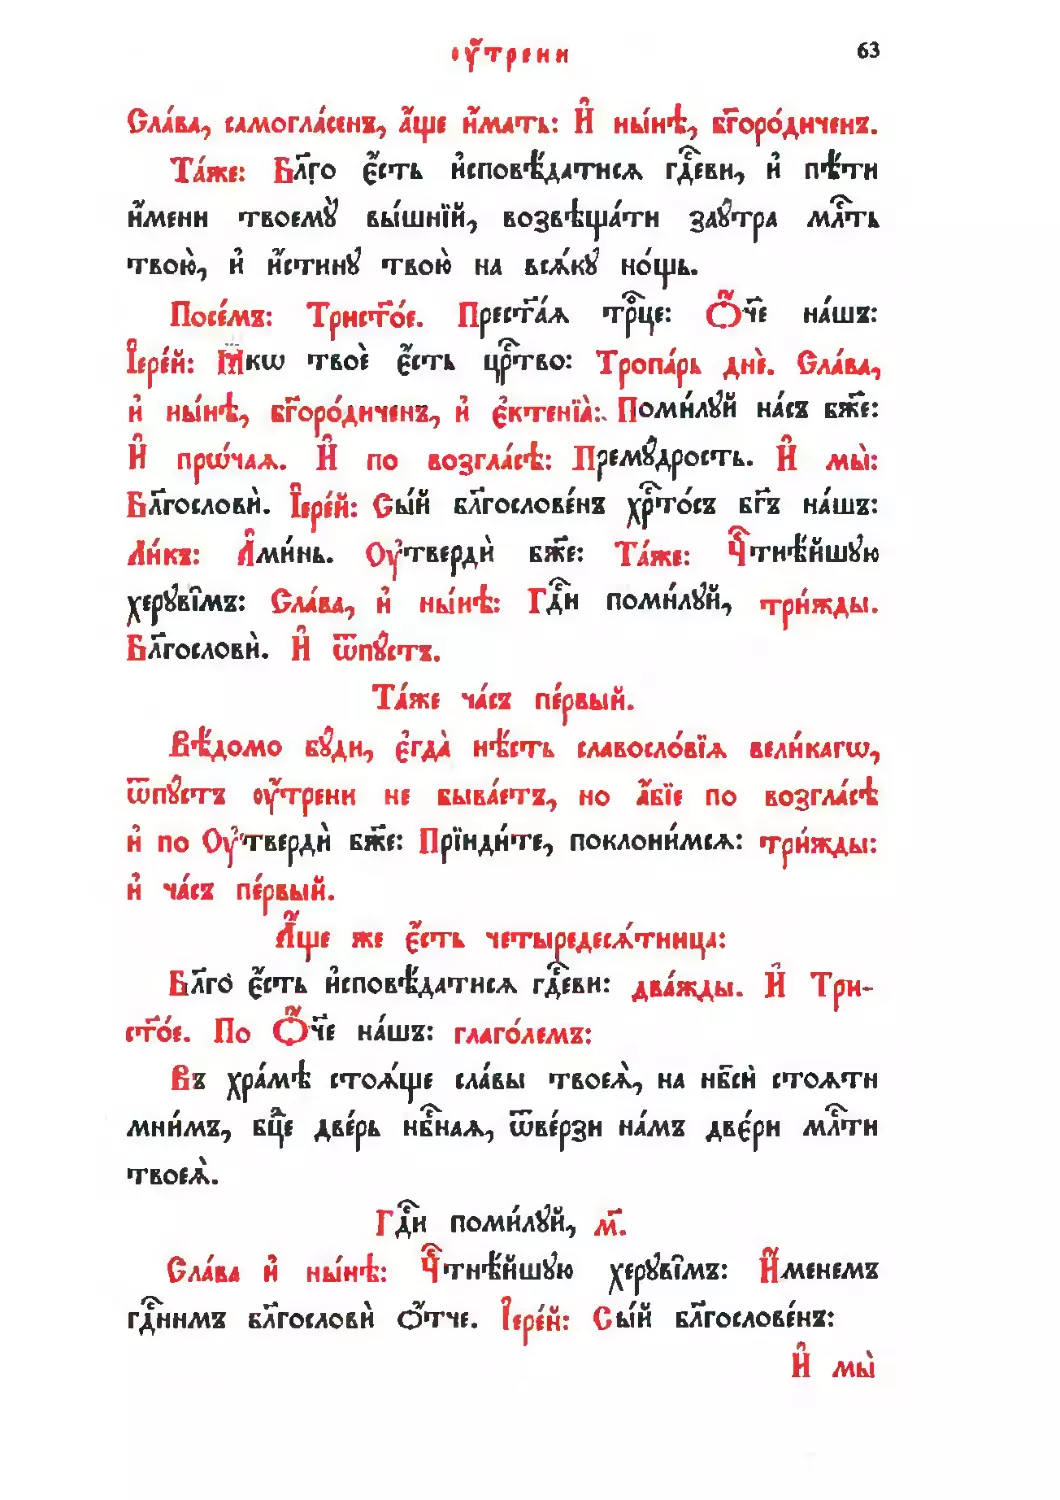 ᲂу҆́трени 63
Сла́ва, самогла́сенъ, а҆́ще и҆́мать: И҆ ны́нѣ, бг҃оро́диченъ.
Та́же: Бл҃го є҆́сть и҆сповѣ́датисѧ гдⷭ҇еви, и҆ пѣ́ти
и҆́мени твоемꙋ̀ вы́шнїй, возвѣща́ти заꙋ́тра млⷭ҇ть
твою̀, и҆ и҆́стинꙋ твою̀ на всѧ́кꙋ но́щь.
Посе́мъ: Трист҃о́е. Прест҃а́ѧ трⷪ҇це: Ѻ҆́ч҃е на́шъ:
І҆ере́й: Ꙗ҆́кѡ твоѐ є҆́сть црⷭ҇тво: Тропа́рь днѐ. Сла́ва,
и҆ ны́нѣ, бг҃оро́диченъ, и҆ є҆ктенїа̀: Поми́лꙋй на́съ бж҃е:
И҆ прѡ́чаѧ. И҆ по возгла́сѣ: Премꙋ́дрость. И҆ мы̀:
Бл҃гословѝ. І҆ере́й: Сы́й бл҃гослове́нъ хрⷭ҇то́съ бг҃ъ на́шъ:
Ли́къ: А҆ми́нь. Оу҆твердѝ бж҃е: Та́же: Чⷭ҇тнѣ́йшꙋю
херꙋві̑мъ: Сла́ва, и҆ ны́нѣ: Гдⷭ҇и поми́лꙋй, три́жды.
Бл҃гословѝ. И҆ ѿпꙋ́стъ.
Та́же ча́съ пе́рвый.
Вѣ́домо бꙋ́ди, є҆гда̀ нѣ́сть славосло́вїѧ вели́кагѡ,
ѿпꙋ́стъ ᲂу҆́трени не быва́етъ, но а҆́бїе по возгла́сѣ
и҆ по Оу҆твердѝ бж҃е: Прїиди́те, поклони́мсѧ: три́жды:
и҆ ча́съ пе́рвый.
А҆́ще же є҆́сть четыредесѧ́тница:
Бл҃го є҆́сть и҆сповѣ́датисѧ гдⷭ҇еви: два́жды. И҆ Три-
ст҃о́е. По Ѻ҆́ч҃е на́шъ: глаго́лемъ:
Въ хра́мѣ стоѧ́ще сла́вы твоеѧ̀, на нб҃сѝ стоѧ́ти
мни́мъ, бцⷣе две́рь нбⷭ҇наѧ, ѿве́рзи на́мъ двє́ри млⷭ҇ти
твоеѧ̀.
Гдⷭ҇и поми́лꙋй, м҃.
Сла́ва и҆ ны́нѣ: Чⷭ҇тнѣ́йшꙋю херꙋві̑мъ: И҆́менемъ
гдⷭ҇нимъ бл҃гословѝ ѻ҆́тче. І҆ере́й: Сы́й бл҃гослове́нъ:
И҆ мы̀